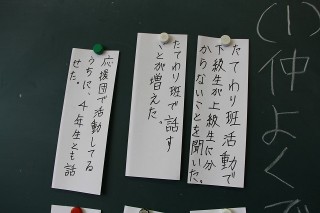 (1)仲よくで
たてわり班活動で
下級生が上級生に分
からないことを聞いた。
たてわり班で話す
ことが増えた。
応援団で活動してる
うちに、4年生とも話
せた。